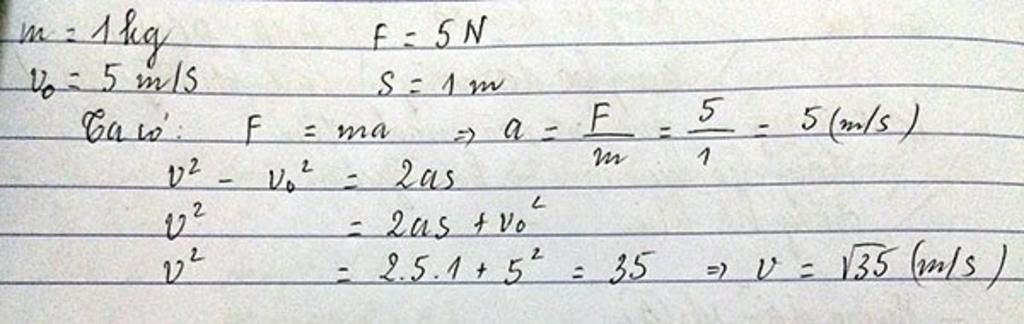 m = 1 kg F = 5 N
v₀ = 5 m/s S = 1 m
Ta có: F = ma ⇒ a = F/m = 5/1 = 5 (m/s)
v² - v₀² = 2as
v² = 2as + v₀²
v² = 2.5.1 + 5² = 35 ⇒ v = √35 (m/s)